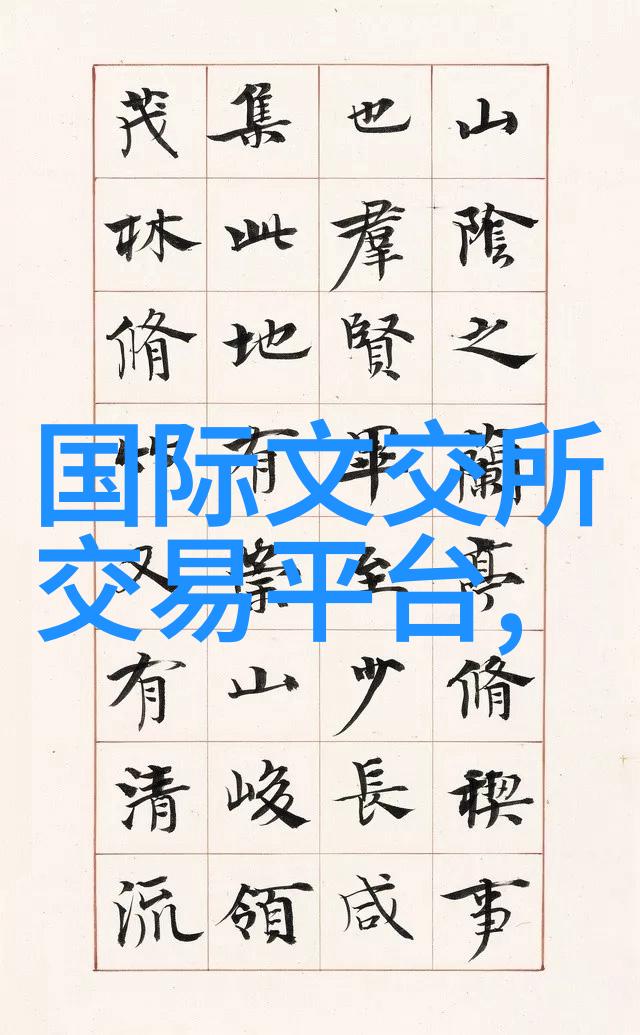 山陰之蘭亭脩稧事
也羣賢畢至少長咸
集此地有崇山峻領
茂林脩竹又有清流
国际文交所
交易平台,